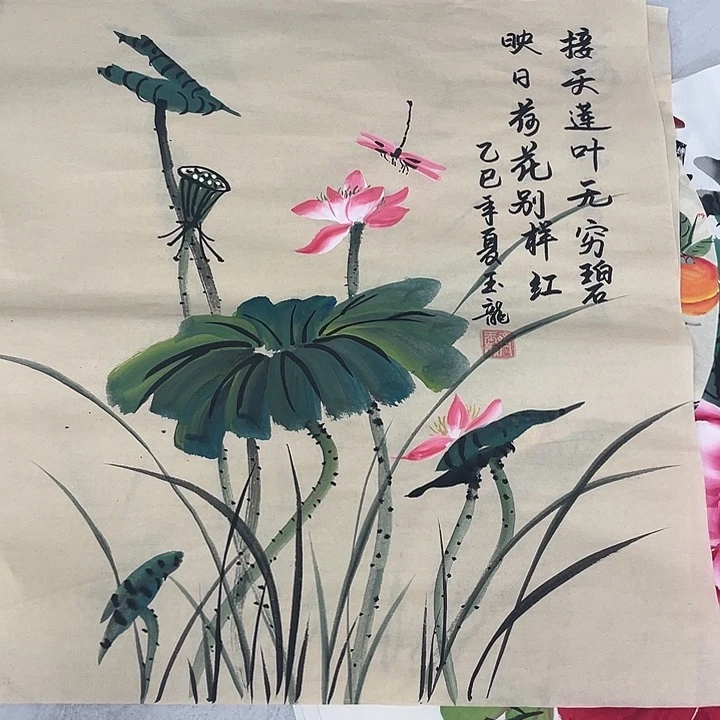 接天莲叶无穷碧
映日荷花别样红
乙巳年夏玉龍